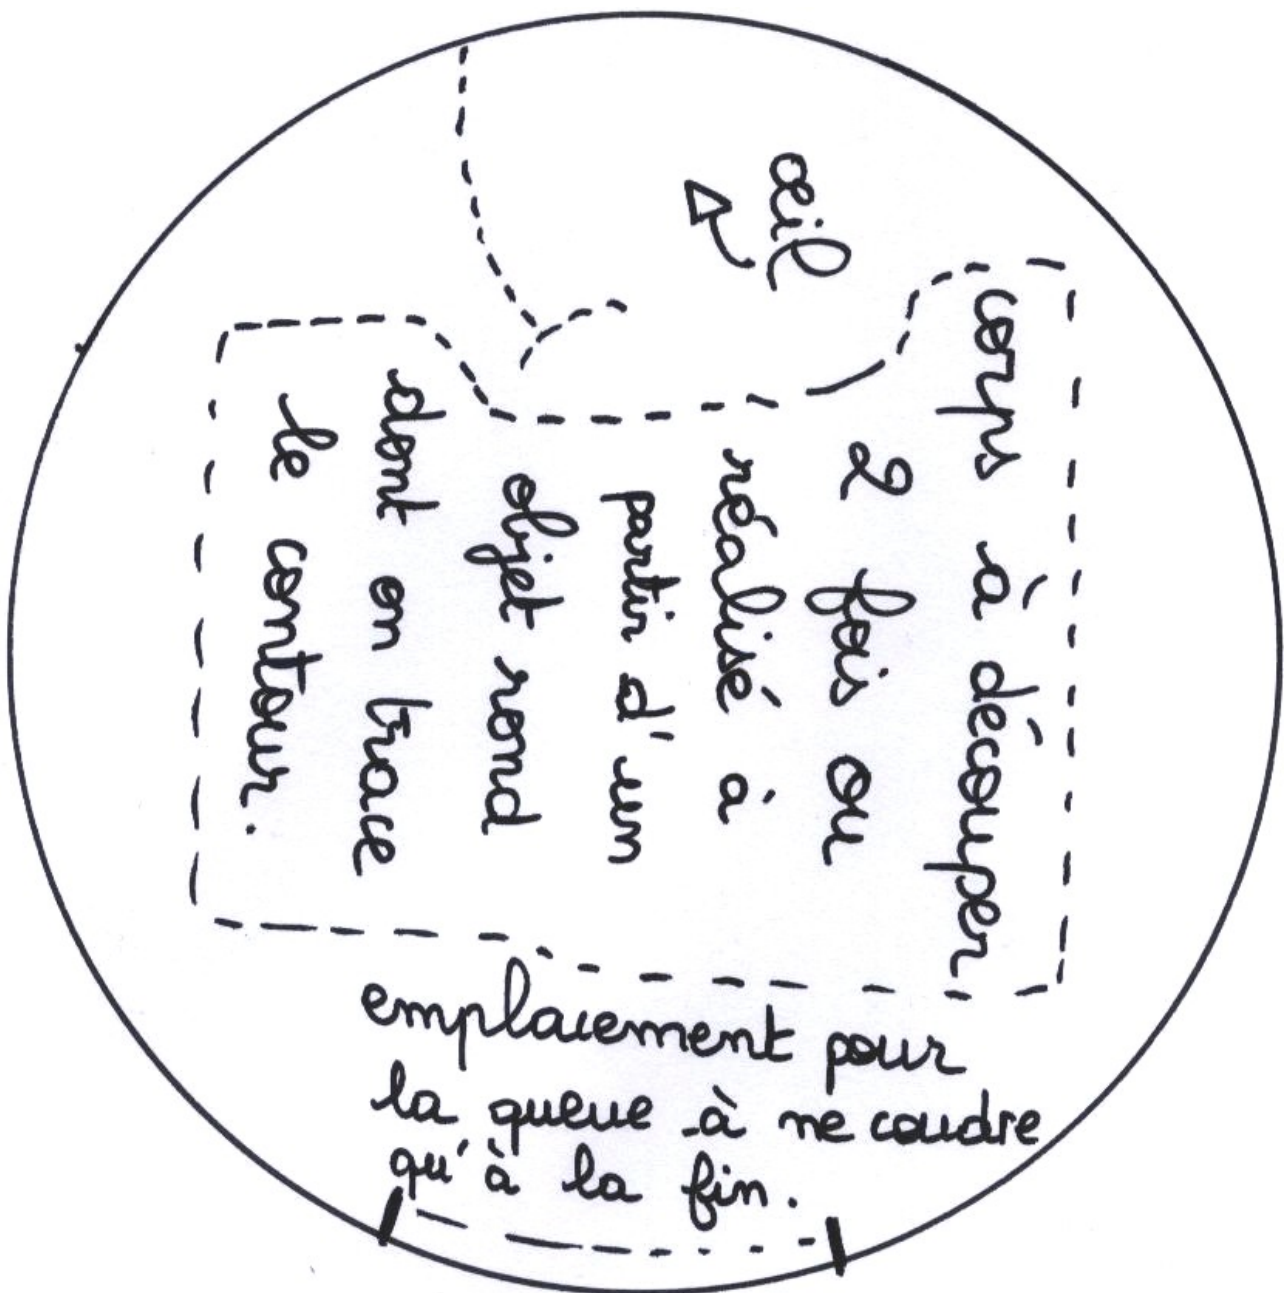 œil
corps à découper
2 fois ou
réalisé à
partir d'un
objet rond
dont on trace
le contour.
emplacement pour
la queue à ne coudre
qu'à la fin.